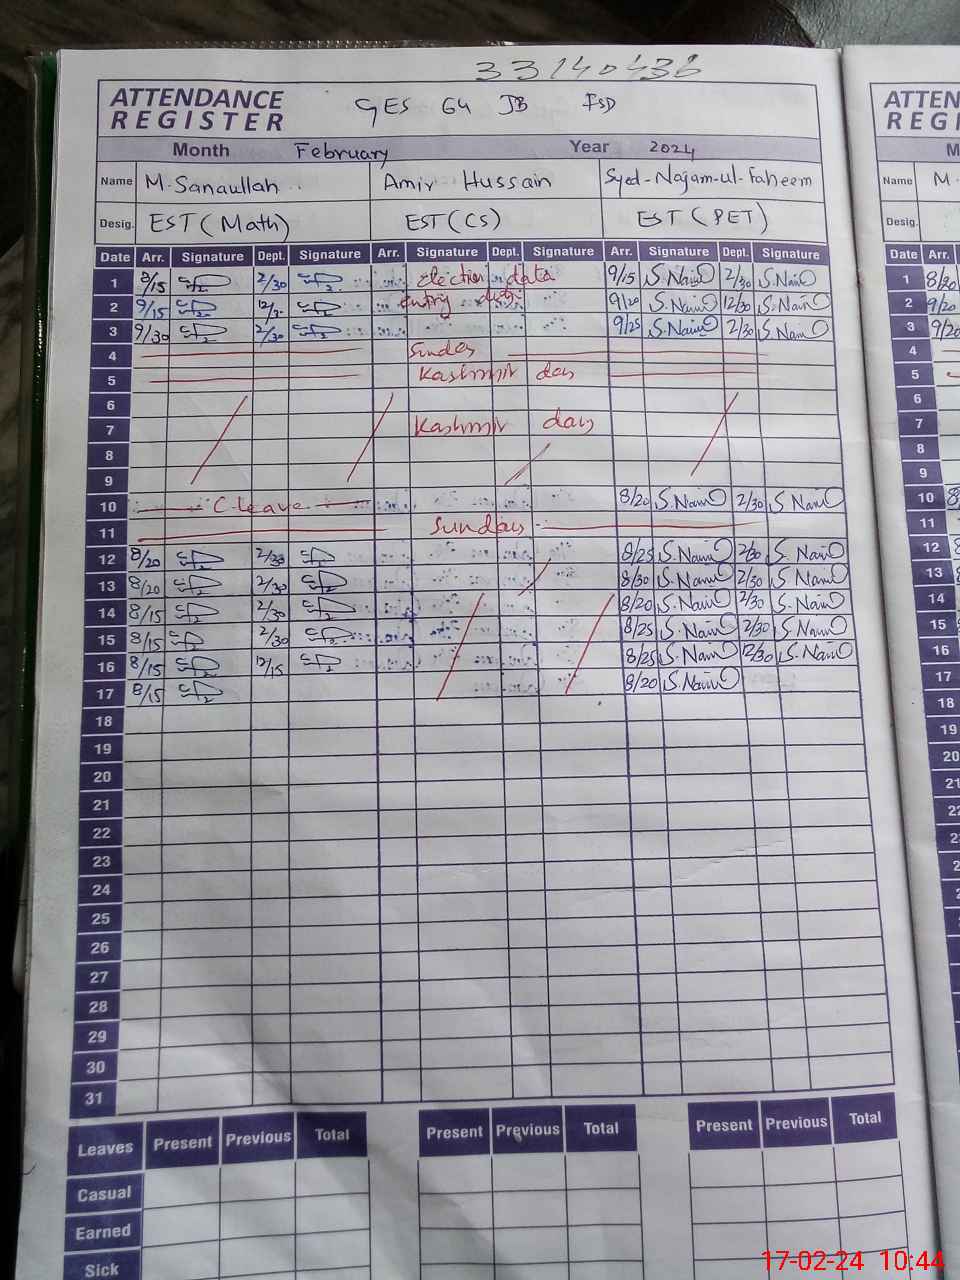 33140436
ATTENDANCE REGISTER
GES 64 JB FSD
ATTEN
REGI
Month February Year 2024
M
Name M. Sanaullah Amir Hussain Syed-Najam-ul-Faheem
Name M.
Desig. EST (Math) EST (CS) EST (PET)
Desig.
Date Arr. Signature Dept. Signature Arr. Signature Dept. Signature Arr. Signature Dept. Signature
Date Arr.
1 8/15 2/30 election data 9/15 S.Naim 2/30 S.Naim 1 8/20
2 9/15 entry duty 9/20 S.Naim 12/30 S.Naim 2 9/20
3 9/30 2/30 9/25 S.Naim 2/30 S.Naim 3 9/20
4 Sunday 4
5 Kashmir day 5
6 6
7 Kashmir day 7
8 8
9 9
10 C leave 8/20 S.Naim 2/30 S.Naim 10
11 Sunday 11
12 8/20 2/30 8/25 S.Naim 2/30 S.Naim 12
13 8/20 2/30 8/30 S.Naim 2/30 S.Naim 13
14 8/15 2/30 8/20 S.Naim 2/30 S.Naim 14
15 8/15 2/30 8/25 S.Naim 2/30 S.Naim 15
16 8/15 12/15 8/25 S.Naim 12/30 S.Naim 16
17 8/15 8/20 S.Naim 17
18 18
19 19
20 20
21 21
22 22
23
24
25
26
27
28
29
30
31
Leaves Present Previous Total Present Previous Total Present Previous Total
Casual
Earned
Sick
17-02-24 10:44